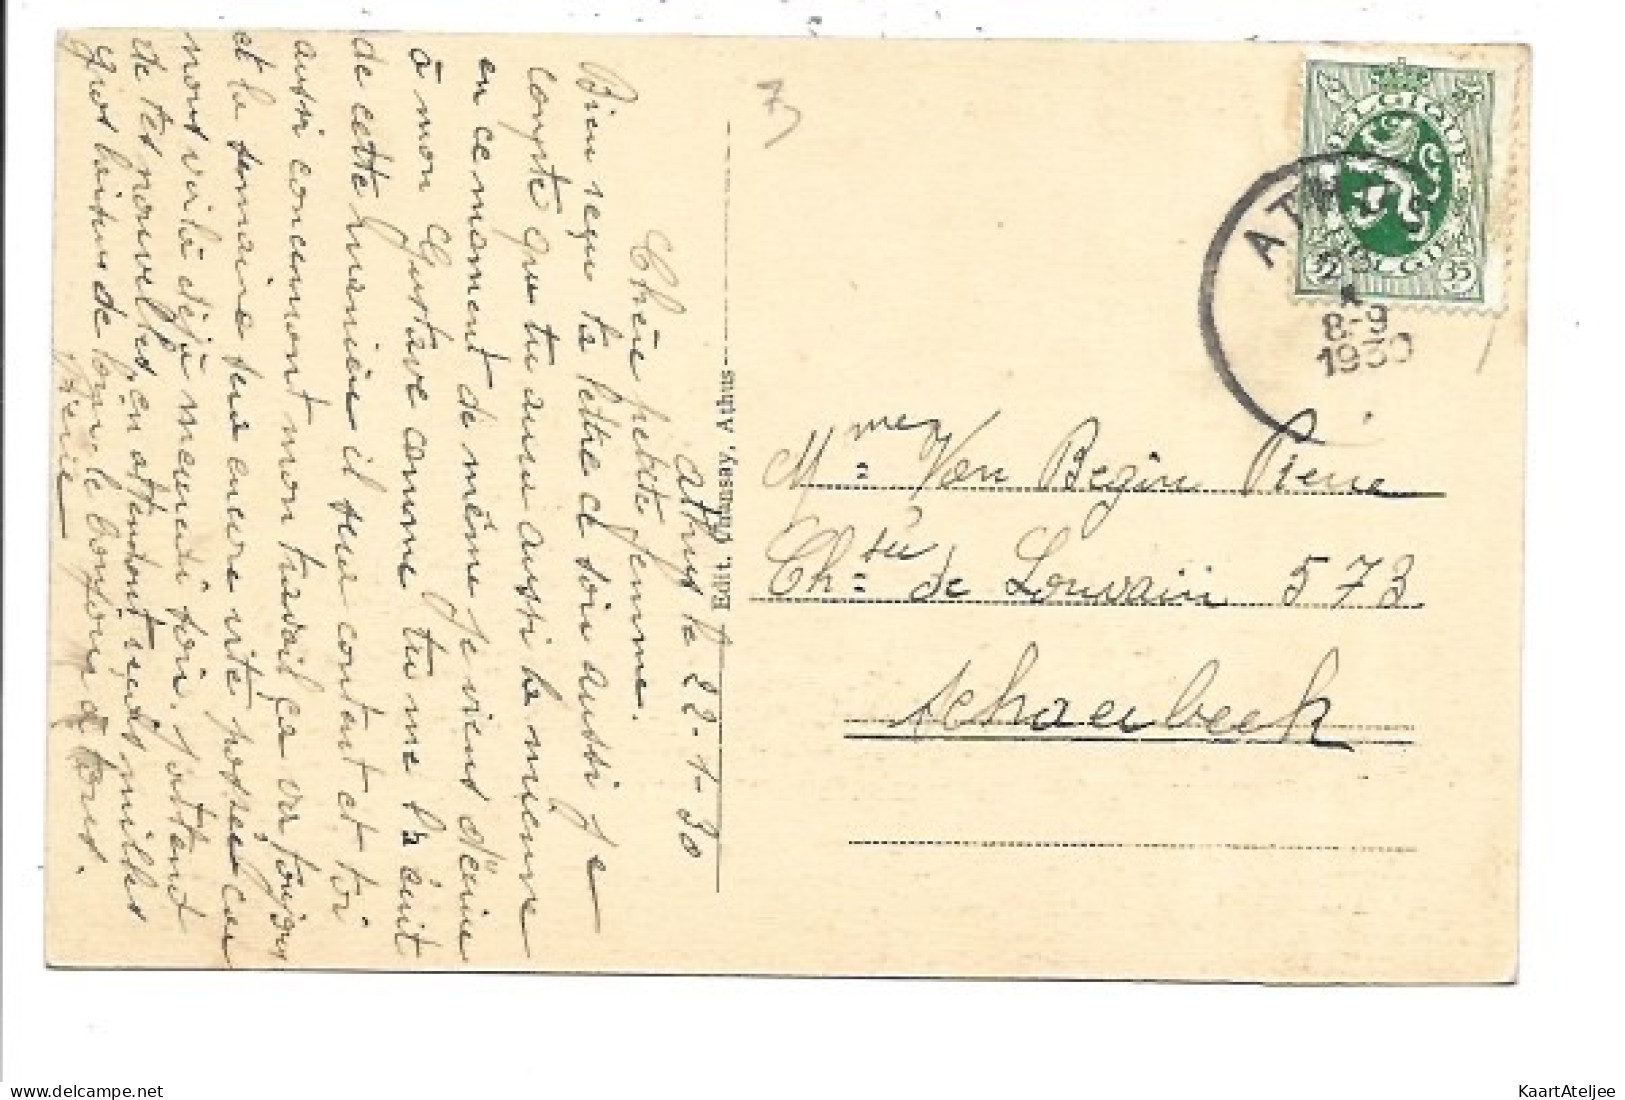 Athus le 22-1-30
Chère petite femme.
Bien reçu ta lettre ce soir aussi je
compte que tu aura aussi la mienne
en ce moment de même je vient d'écrire
à mon Gustave comme tu me l'a écrit
de cette manière il sera content et toi
aussi concernant mon travail ça va toujour
et la semaine sera encore vite passée car
nous voilà déjà mercredi soir, j'attend
de tes nouvelles, en attendant reçoit milles
gros baisers de loin, le bonjour à tous.
Edit. Andrusay, Athus
ATHUS
23
8-9
1930
BELGIQUE
BELGIË
35
Mme Van Begin Pierre
Chsée de Louvain 573
Schaerbeek
KaartAteljee
www.delcampe.net